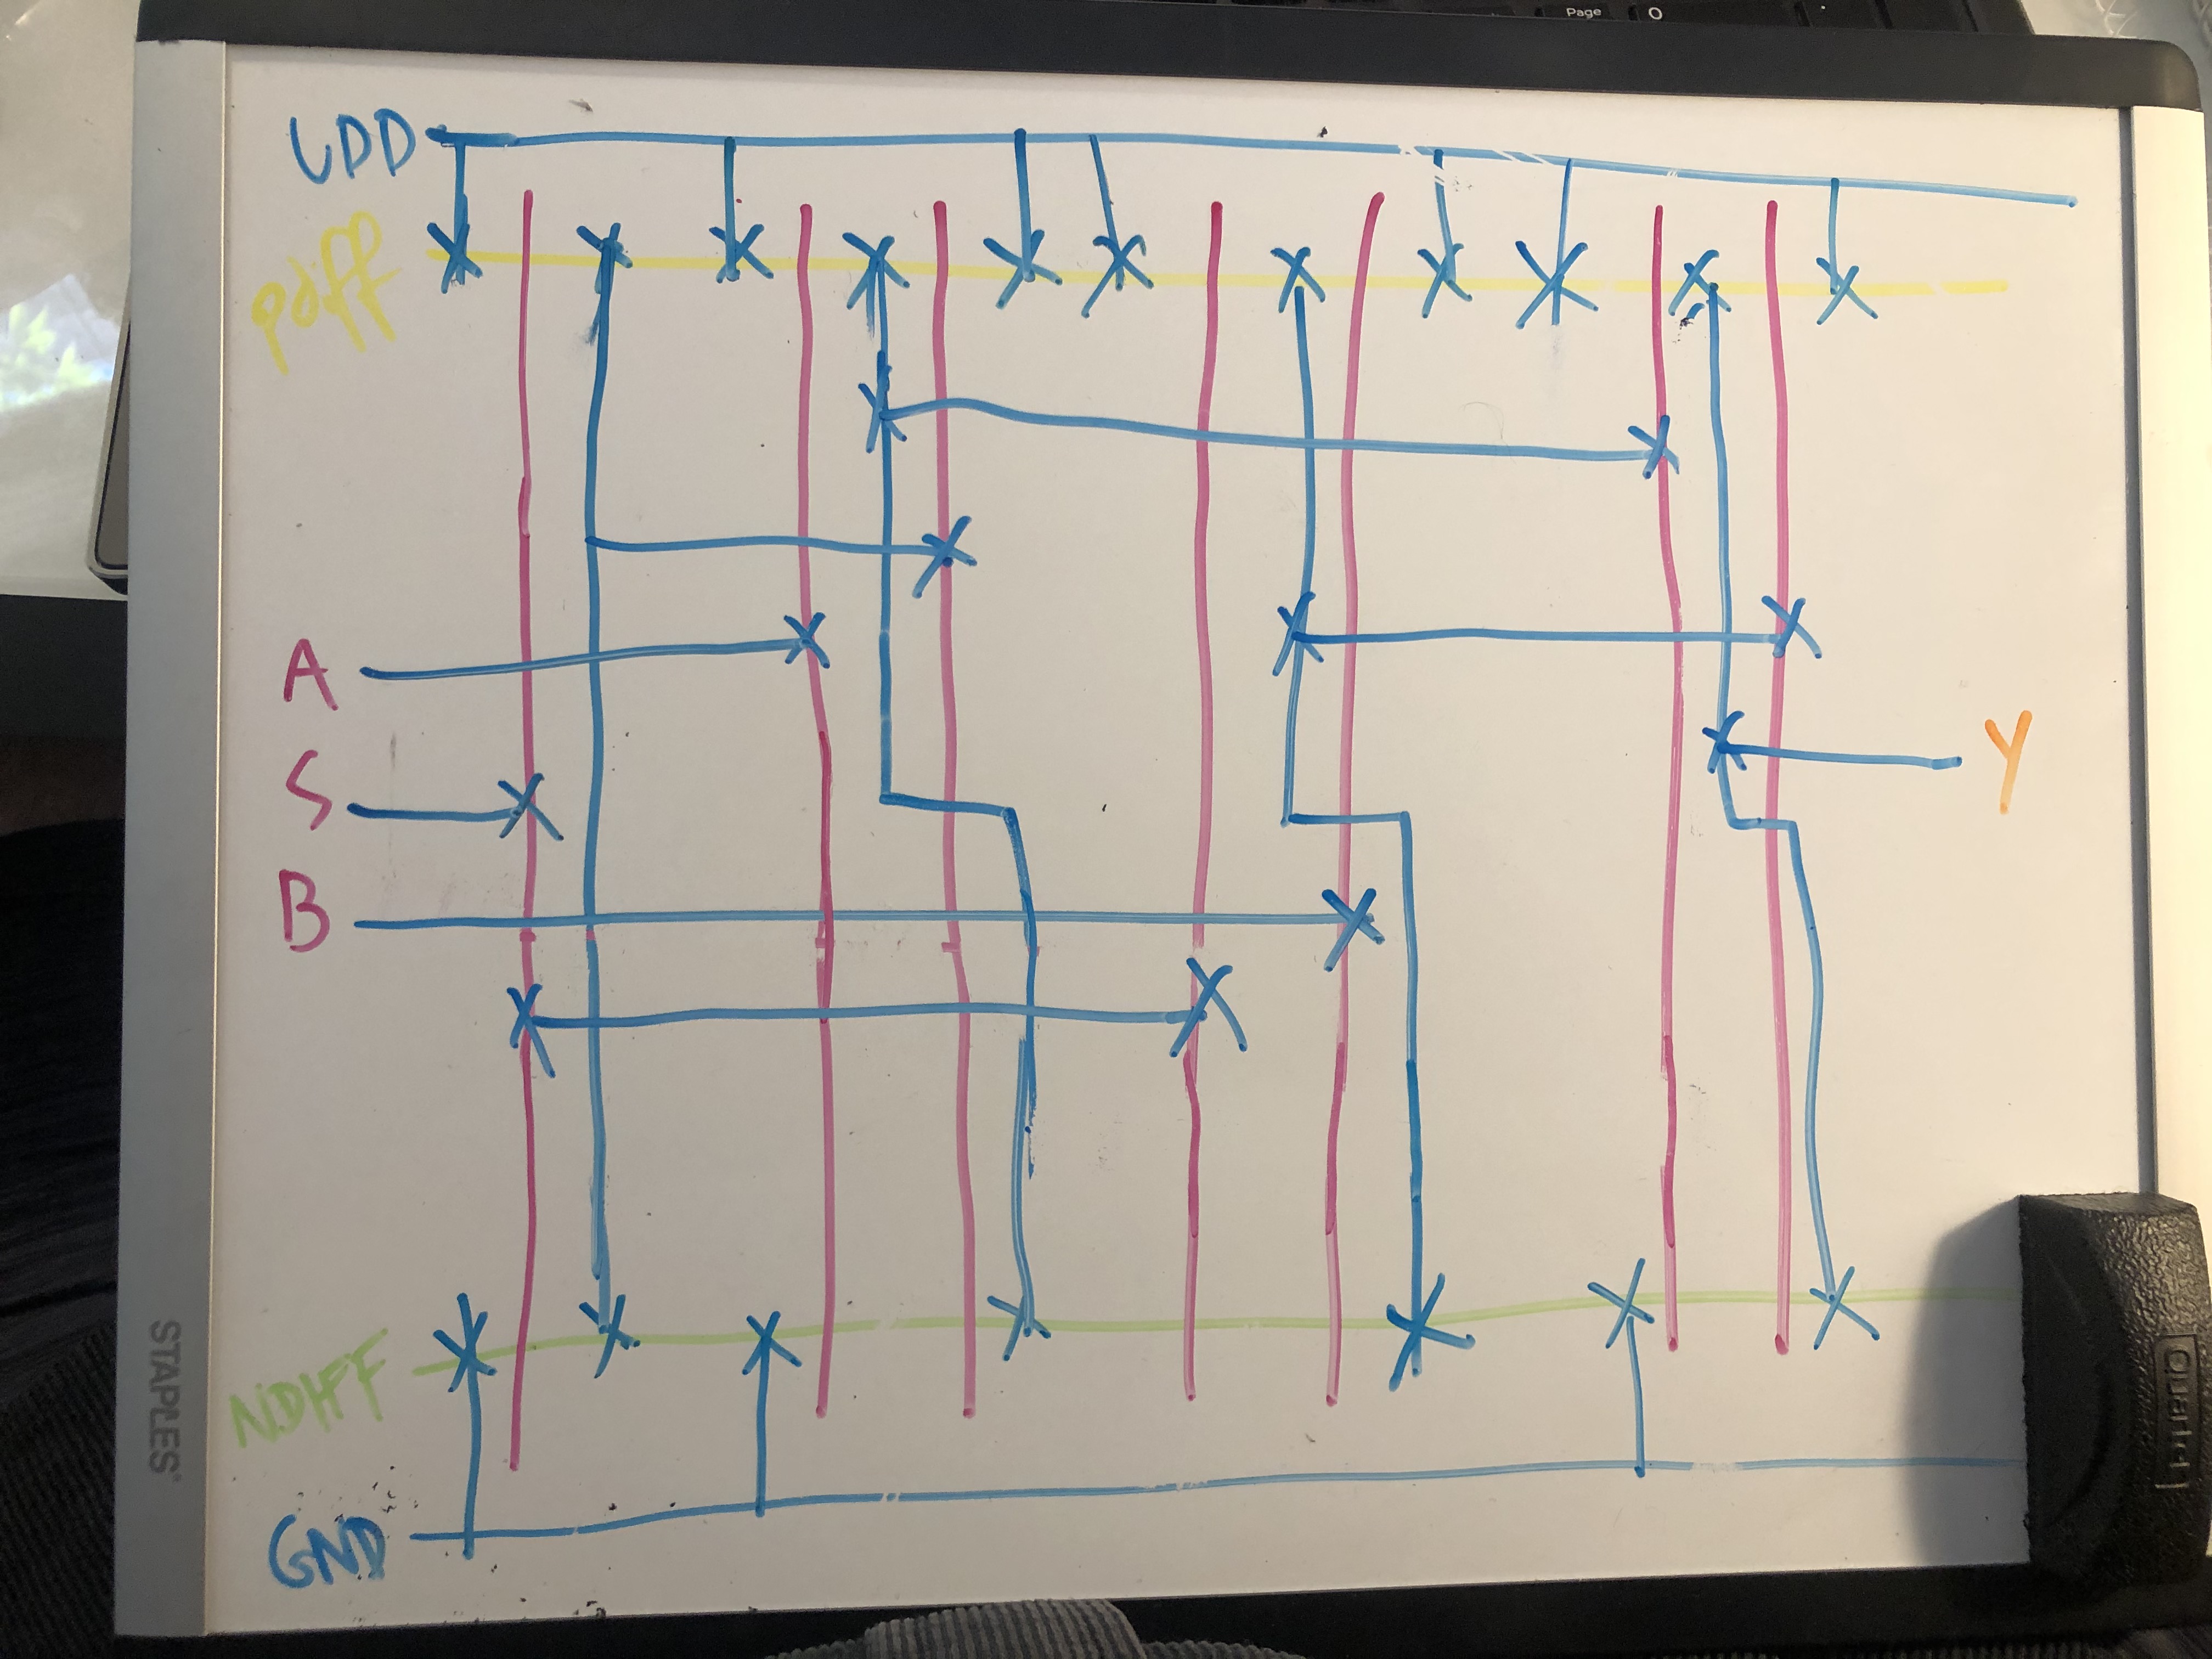 Page
VDD
pdiff
A
S
Y
B
NDIFF
GND
STAPLES
Quartet